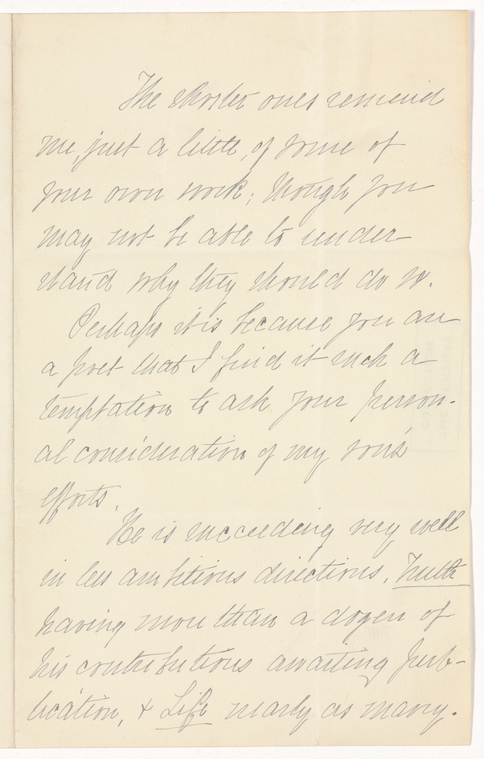 The shorter ones remind
me, just a little, of some of
your own work; though you
may not be able to under-
stand why they should do so.
Perhaps it is because you are
a poet that I find it such a
temptation to ask your person-
al consideration of my son's
efforts.
He is succeeding very well
in less ambitious directions, Truth
having more than a dozen of
his contributions awaiting pub-
lication, & Life nearly as many.